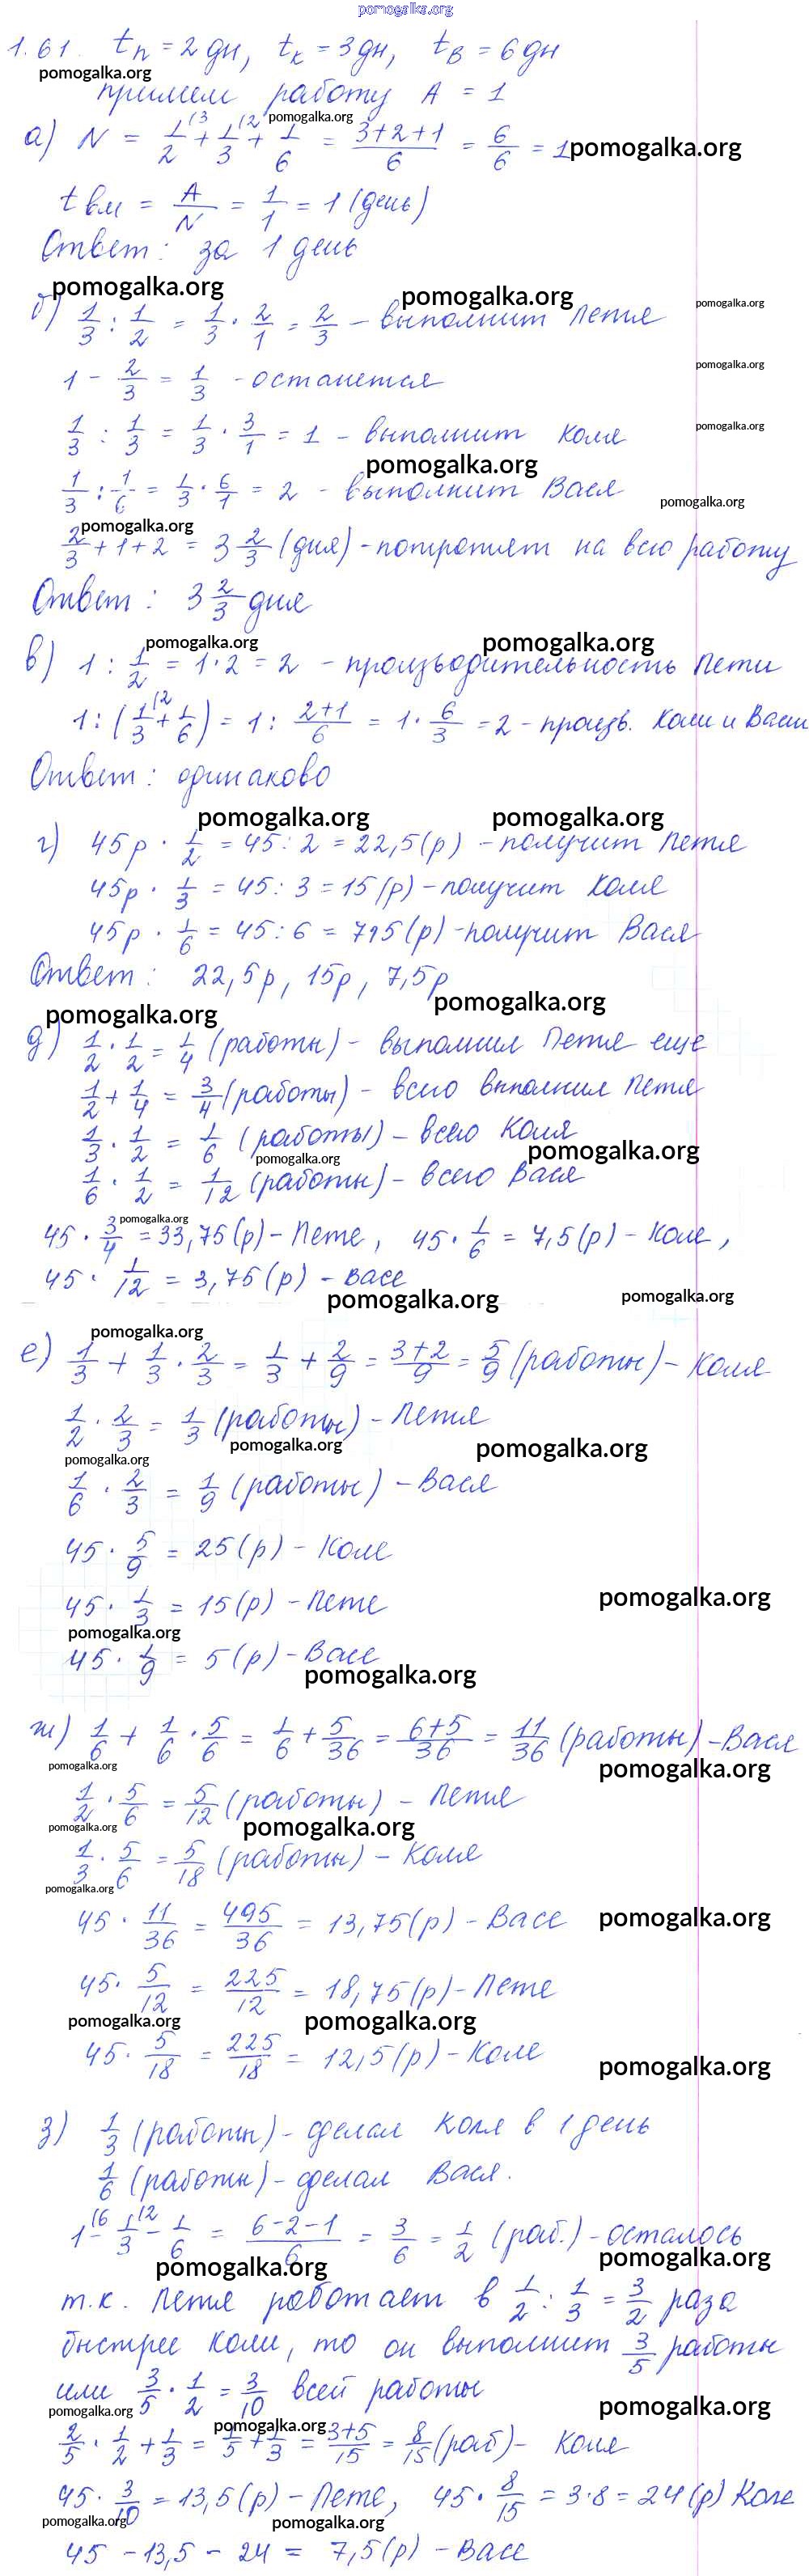 pomogalka.org
1.61. tп = 2 дн, tк = 3 дн, tв = 6 дн
pomogalka.org
примем работу A = 1
pomogalka.org
а) N = 1/2 + 1/3 + 1/6 = (3+2+1)/6 = 6/6 = 1 pomogalka.org
t вм = A/N = 1/1 = 1 (день)
Ответ: за 1 день
pomogalka.org pomogalka.org pomogalka.org
б) 1/3 : 1/2 = 1/3 · 2/1 = 2/3 - выполнит Петя
1 - 2/3 = 1/3 - останется pomogalka.org
1/3 : 1/3 = 1/3 · 3/1 = 1 - выполнит Коля pomogalka.org
pomogalka.org
1/3 : 1/6 = 1/3 · 6/1 = 2 - выполнит Вася pomogalka.org
pomogalka.org
2/3 + 1 + 2 = 3 2/3 (дня) - потратят на всю работу
Ответ: 3 2/3 дня
pomogalka.org pomogalka.org
в) 1 : 1/2 = 1·2 = 2 - производительность Пети
1 : (1/3 + 1/6) = 1 : (2+1)/6 = 1 · 6/3 = 2 - произв. Коли и Васи
Ответ: одинаково
pomogalka.org pomogalka.org
г) 45р · 1/2 = 45 : 2 = 22,5 (р) - получит Петя
45р · 1/3 = 45 : 3 = 15 (р) - получит Коля
45р · 1/6 = 45 : 6 = 795 (р) - получит Вася
Ответ: 22,5р, 15р, 7,5р
pomogalka.org pomogalka.org
д) 1/2 · 1/2 = 1/4 (работы) - выполнил Петя еще
1/2 + 1/4 = 3/4 (работы) - всего выполнил Петя
1/3 · 1/2 = 1/6 (работы) - всего Коля
pomogalka.org pomogalka.org
1/6 · 1/2 = 1/12 (работы) - всего Вася
pomogalka.org
45 · 3/4 = 33,75 (р) - Пете, 45 · 1/6 = 7,5 (р) - Коле,
45 · 1/12 = 3,75 (р) - Васе
pomogalka.org pomogalka.org
pomogalka.org
е) 1/3 + 1/3 · 2/3 = 1/3 + 2/9 = (3+2)/9 = 5/9 (работы) - Коля
1/2 · 2/3 = 1/3 (работы) - Петя
pomogalka.org pomogalka.org pomogalka.org
1/6 · 2/3 = 1/9 (работы) - Вася
45 · 5/9 = 25 (р) - Коле
45 · 1/3 = 15 (р) - Пете pomogalka.org
pomogalka.org
45 · 1/9 = 5 (р) - Васе
pomogalka.org
ж) 1/6 + 1/6 · 5/6 = 1/6 + 5/36 = (6+5)/36 = 11/36 (работы) - Вася
pomogalka.org pomogalka.org
1/2 · 5/6 = 5/12 (работы) - Петя
pomogalka.org pomogalka.org
1/3 · 5/6 = 5/18 (работы) - Коля
pomogalka.org
45 · 11/36 = 495/36 = 13,75 (р) - Васе pomogalka.org
45 · 5/12 = 225/12 = 18,75 (р) - Пете
pomogalka.org pomogalka.org
45 · 5/18 = 225/18 = 12,5 (р) - Коле pomogalka.org
з) 1/3 (работы) - сделал Коля в 1 день
1/6 (работы) - сделал Вася.
1 - 1/3 - 1/6 = (6-2-1)/6 = 3/6 = 1/2 (раб.) - осталось
pomogalka.org pomogalka.org
т.к. Петя работает в 1/2 : 1/3 = 3/2 раза
быстрее Коли, то он выполнит 3/5 работы
или 3/5 · 1/2 = 3/10 всей работы
pomogalka.org pomogalka.org pomogalka.org
2/5 · 1/2 + 1/3 = 1/5 + 1/3 = (3+5)/15 = 8/15 (раб) - Коля
45 · 3/10 = 13,5 (р) - Пете, 45 · 8/15 = 3·8 = 24 (р) Коле
pomogalka.org pomogalka.org
45 - 13,5 - 24 = 7,5 (р) - Васе